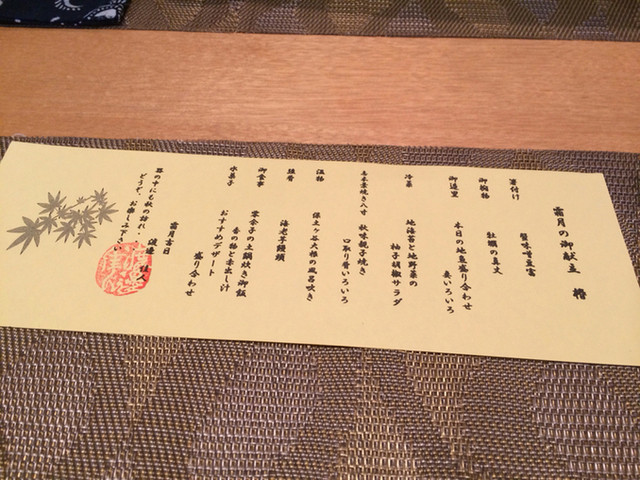 霜月の御献立 椿
箸付け
蟹味噌豆富
御椀物
牡蠣の真丈
御造里
本日の地魚盛り合わせ
妻いろいろ
冷菜
地海苔と地野菜の
柚子胡椒サラダ
秋味親子焼き
口取り肴いろいろ
温物
保土ヶ谷大根の風呂吹き
強肴
海老芋饅頭
御食事
零余子の土鍋炊き御飯
香の物と赤出し汁
水菓子
おすすめデザート
盛り合わせ
器の中にも秋の訪れ、
どうぞ、お楽しみ下さい
霜月吉日
渡邉